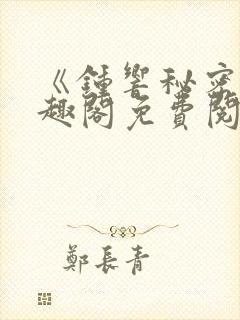 《鍾響秘密
趣閣免費閱
鄭長青